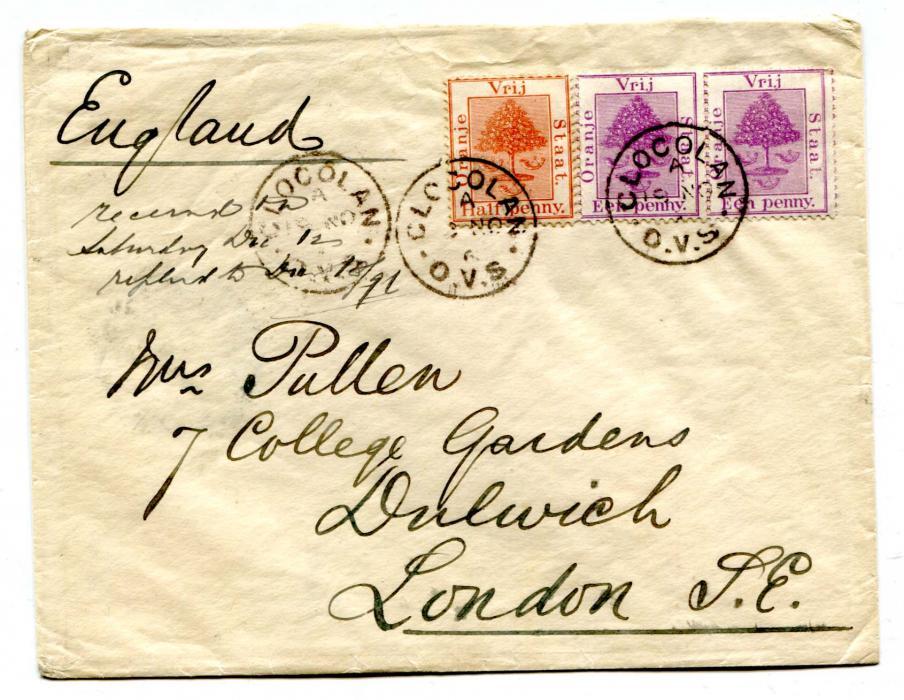 England
Vrij
Oranje
Staat.
Half penny.
Vrij
Oranje
Staat.
Een penny.
Vrij
Staat.
Een penny.
CLOCOLAN
A
NO
CLOCOLAN
A
NO
O.V.S.
CLOCOLAN
A
NO
O.V.S.
received
Saturday Dec 12
replied to Dec 18/91
Mrs Pullen
7 College Gardens
Dulwich
London S.E.